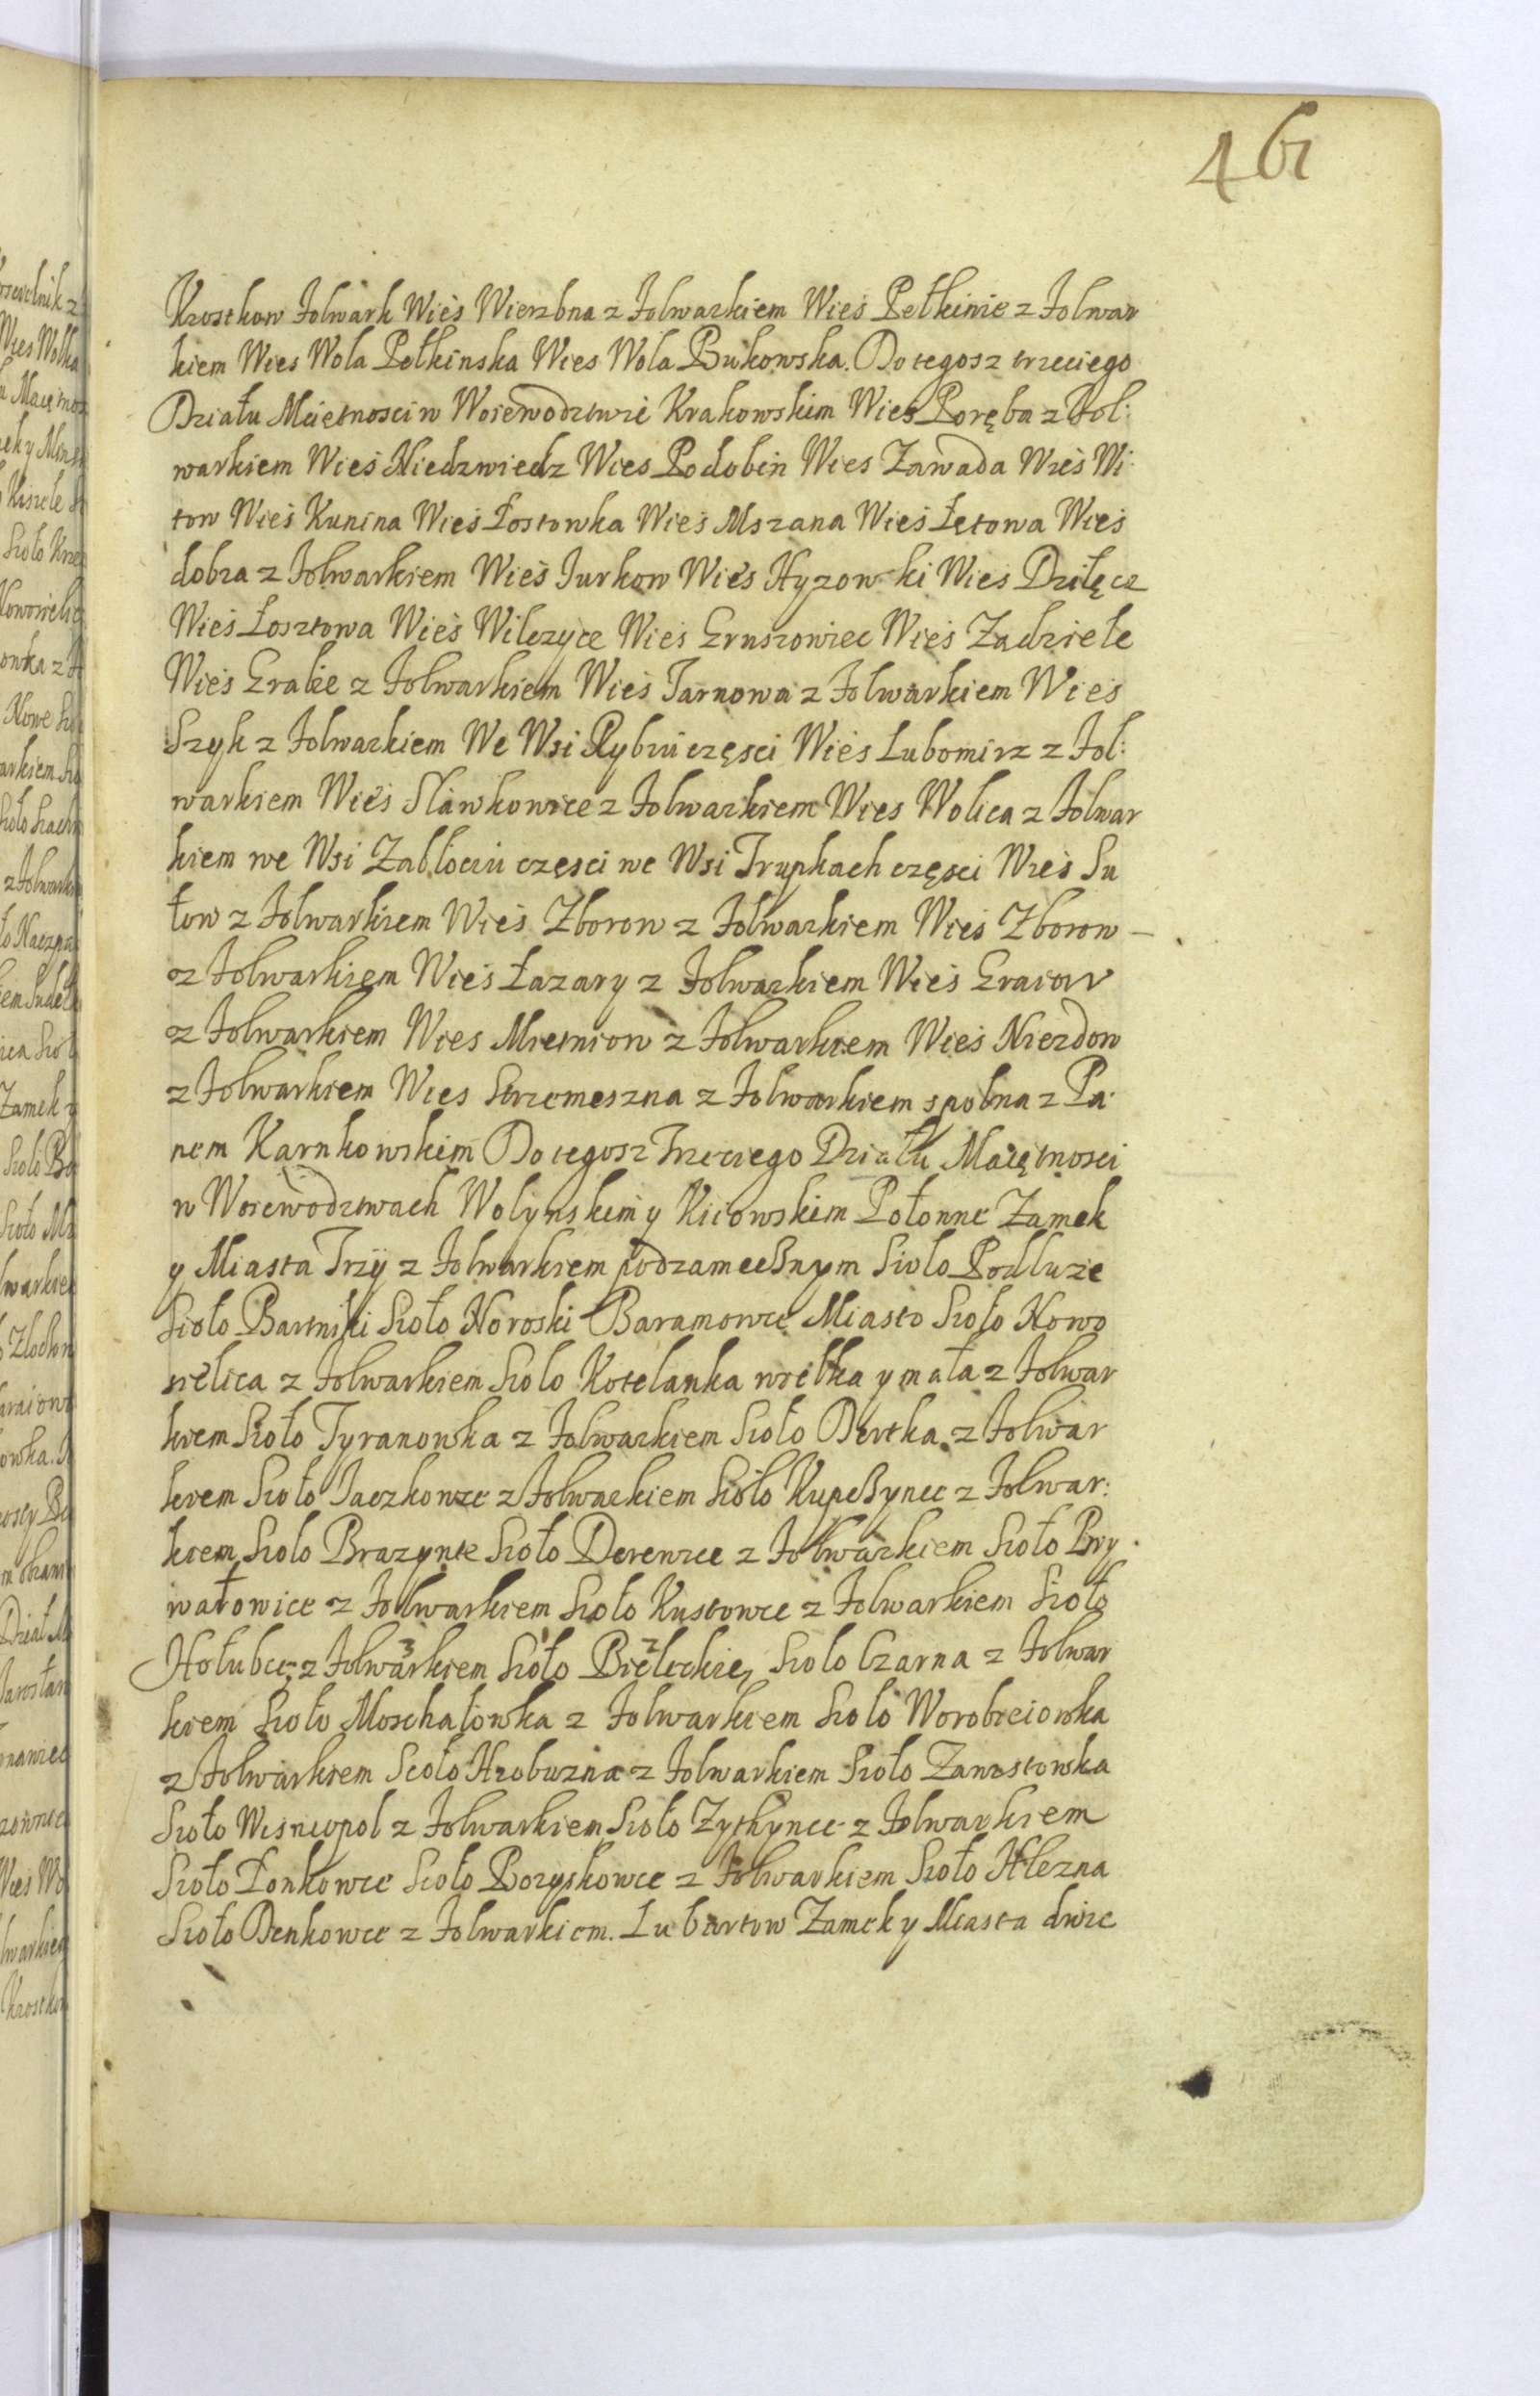 461
Krostkow folwark Wieś Wierzbna z folwarkiem Wieś Pełkinie z folwar
kiem Wies Wola Pełkinska Wies Wola Bukowska. Do tegosz trzeciego
Działu Maiętnosci w Woiewodztwie Krakowskim Wies Poręba z fol:
warkiem Wieś Niedzwiedz Wies Podobin Wies Zawada Wieś Wi
tow Wieś Kunina Wieś Łostowka Wieś Mszana Wieś Łętowa Wieś
dobra z folwarkiem Wieś Jurkow Wieś Hyzowki Wies Dzilęcz
Wieś Łosztowa Wieś Wilczyce Wieś Gruszowiec Wieś Zadziele
Wieś Grabie z folwarkiem Wieś Tarnowa z folwarkiem Wies
Szyk z folwarkiem We Wsi Rybiu częsci Wieś Lubomirz z fol:
warkiem Wieś Sławkowice z folwarkiem Wies Wolica z folwar
kiem we Wsi Zabłociu częsci we Wsi Trupkach częsci Wieś Su
łow z folwarkiem Wieś Zborow z folwarkiem Wieś Zborow –
z folwarkiem Wieś Łazany z folwarkiem Wieś Graiow
z folwarkiem Wies Mietniow z folwarkiem Wieś Niezdow
z folwarkiem Wies Strzemeszna z folwarkiem spolna z Pa
nem Karnkowskim Do tegosz Trzeciego Działu Maiętnosci
w Woiewodztwach Wolynskim y Kiiowskim Połonne Zamek
y Miasta Trzÿ z folwarkiem podzamecßnym Sioło Podluze
Sioło Bartniki Sioło Noroski Baranowce Miasto Sioło Nowo
sielica z folwarkiem Sioło Kotelanka wielka y mała z folwar
kiem Sioło Tyranowka z folwarkiem Sioło Dertka z folwar
kiem Sioło Jaczkowce z folwarkiem Sioło Kupcßynce z folwar:
kiem Sioło Brazynce Sioło Derewicze z folwarkiem Sioło Pry
wałowice z folwarkiem Sioło Kustowce z folwarkiem Sioło
Hołubcze z folwarkiem Sioło Bieleckie, Sioło Czarna z folwar
kiem Sioło Moschałowka z folwarkiem Sioło Worobieiowka
z folwarkiem Sioło Hrobuzna z folwarkiem Sioło Zanostowska
Sioło Wisniopol z folwarkiem Sioło Zythynce z folwarkiem
Sioło Łonkowce Sioło Boryskowce z folwarkiem Sioło Hlezna
Sioło Denkowce z folwarkiem. Lubartow Zamek y Miasta dwie